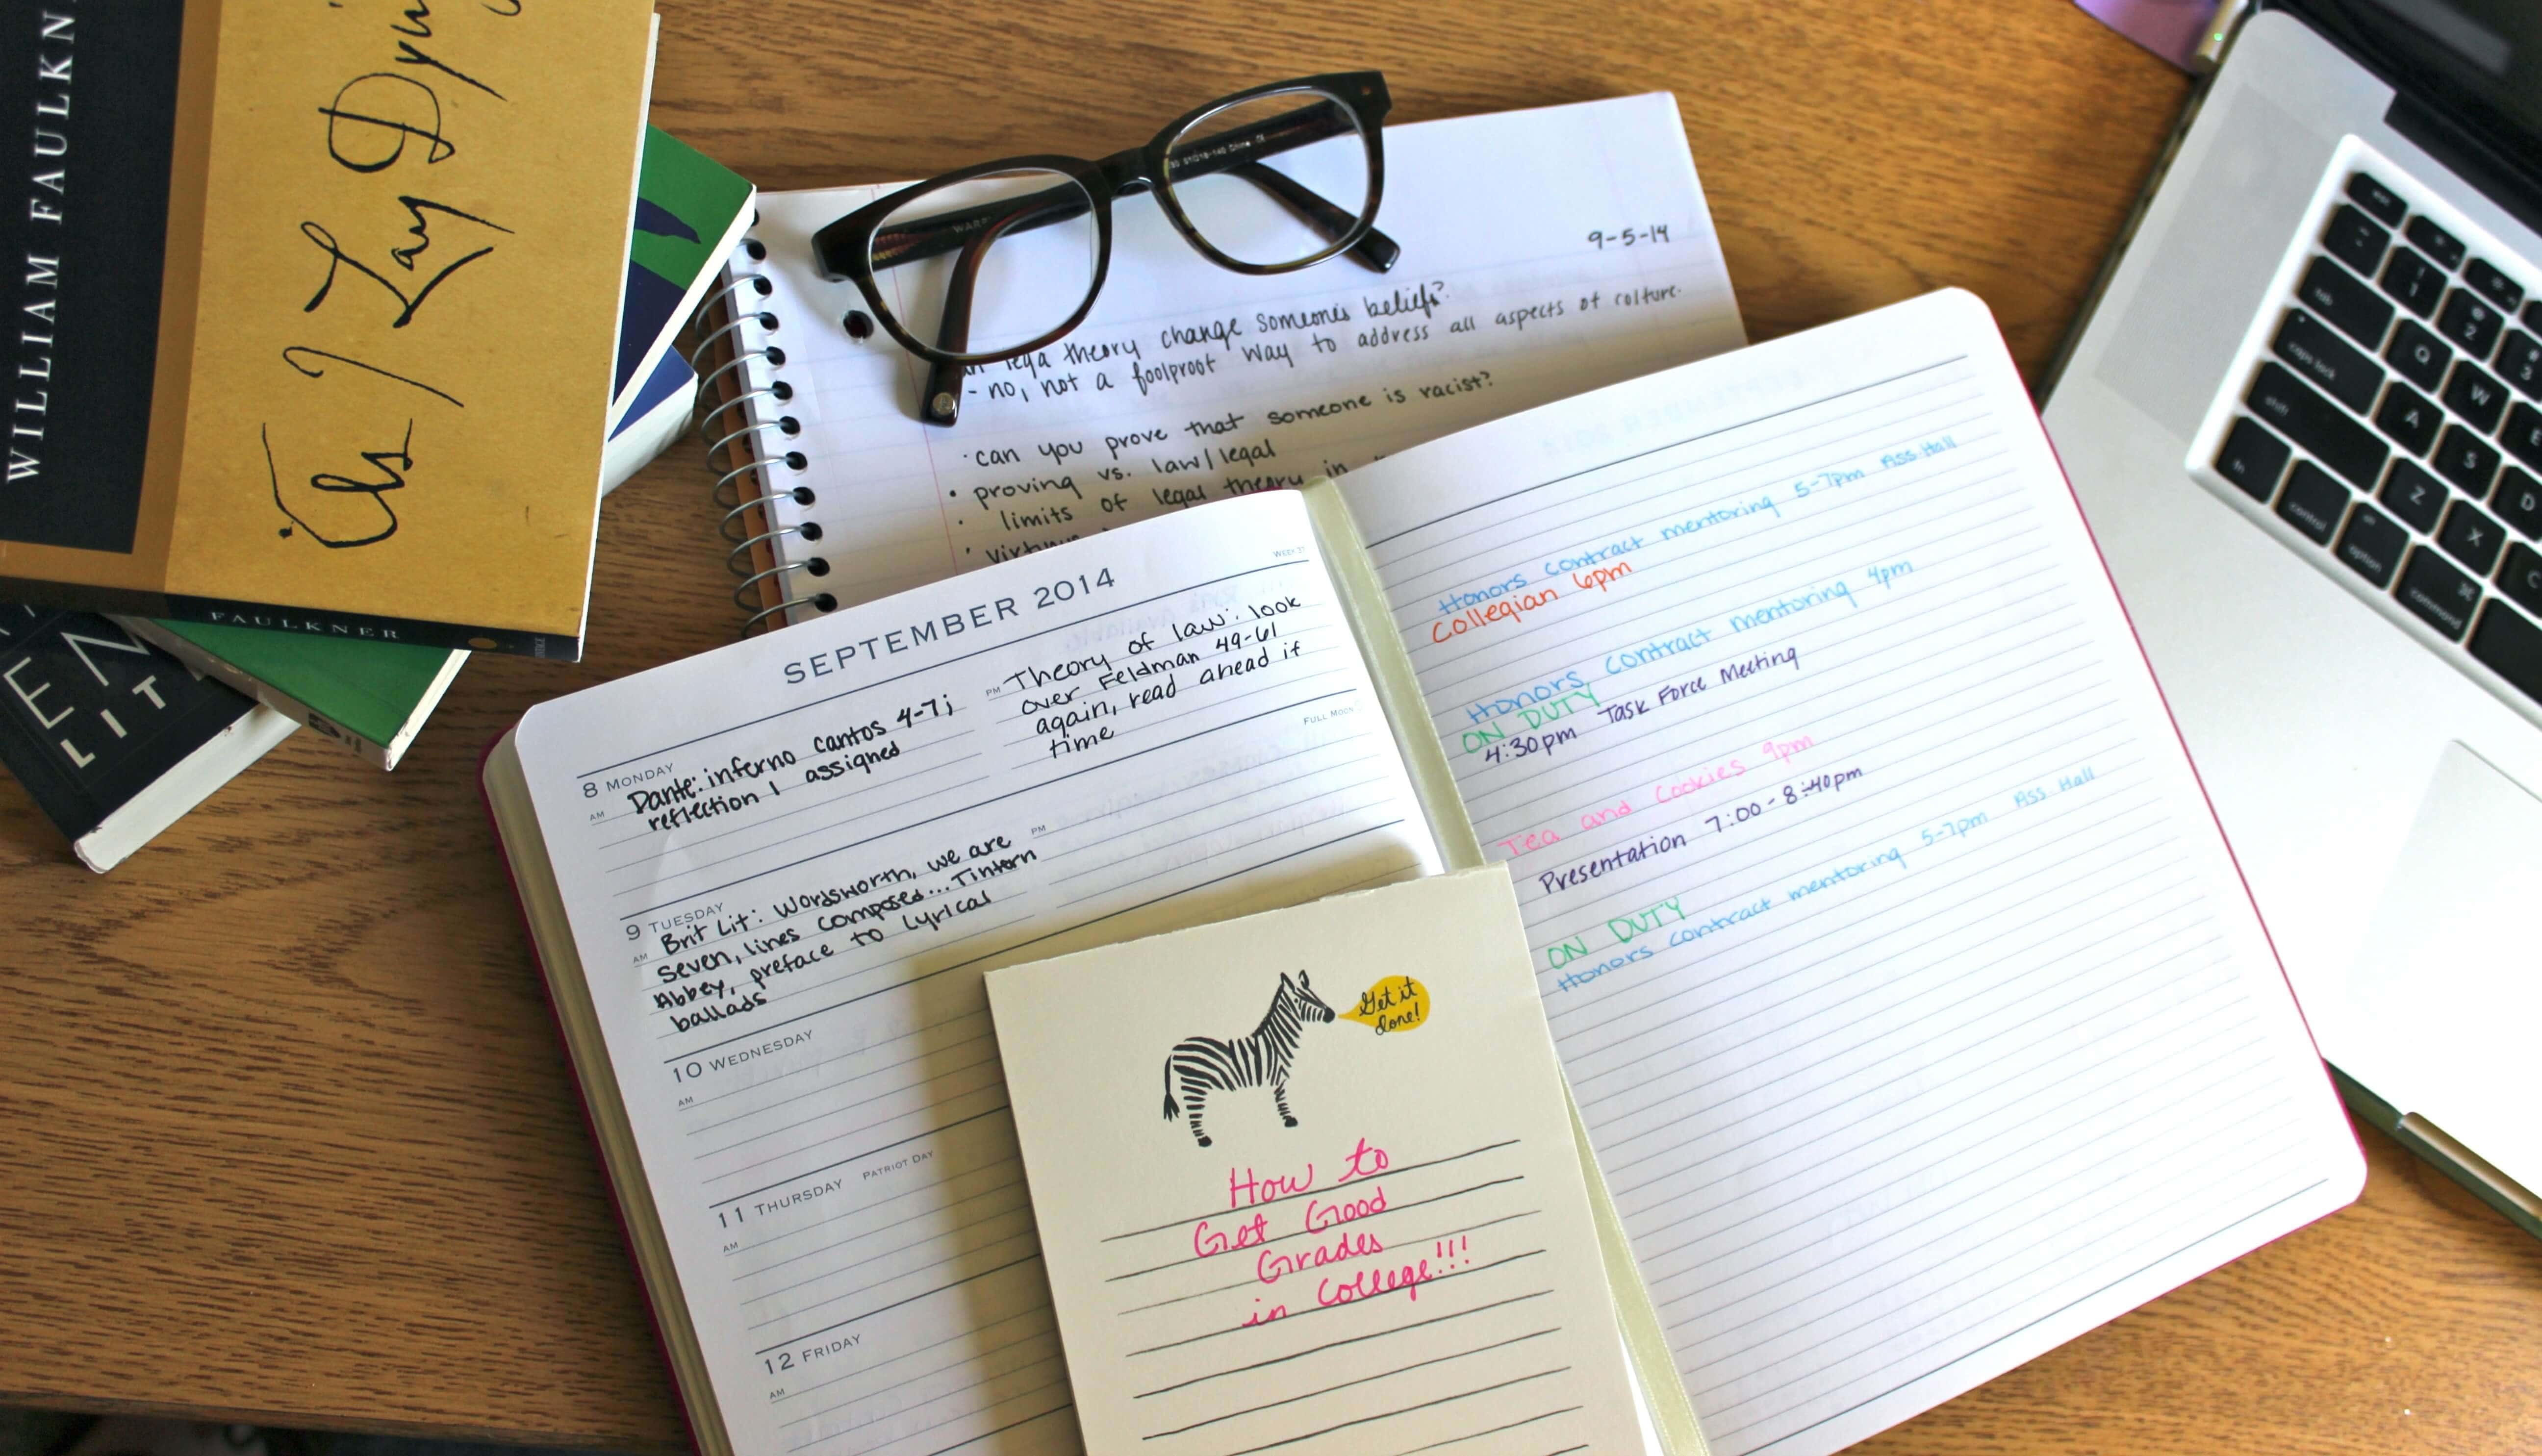 WILLIAM FAULKN
As I Lay Dyin
FAULKNER
EN
LIT
9-5-14
theory change someone's beliefs?
- no, not a foolproof way to address all aspects of culture.
· can you prove that someone is racist?
· proving vs. law/legal
· limits of legal theory in
SEPTEMBER 2014
WEEK 37
8 MONDAY
AM
Dante: inferno cantos 4-7;
reflection 1 assigned
PM
Theory of law: look
over Feldman 49-61
again, read ahead if
time
FULL MOON
9 TUESDAY
AM
Brit Lit: Wordsworth, we are
seven, lines composed... Tintern
Abbey, preface to lyrical
ballads
PM
10 WEDNESDAY
AM
11 THURSDAY PATRIOT DAY
AM
12 FRIDAY
AM
Honors contract mentoring 5-7pm Ass Hall
Collegian 6pm
Honors contract mentoring 4pm
ON DUTY
4:30pm Task Force Meeting
Tea and Cookies 9pm
Presentation 7:00-8:40pm
ON DUTY
Honors contract mentoring 5-7pm Ass Hall
Get it
done!
How to
Get Good
Grades
in College!!!
tab
caps lock
shift
fn
control
option
command
Q
W
A
S
D
Z
X